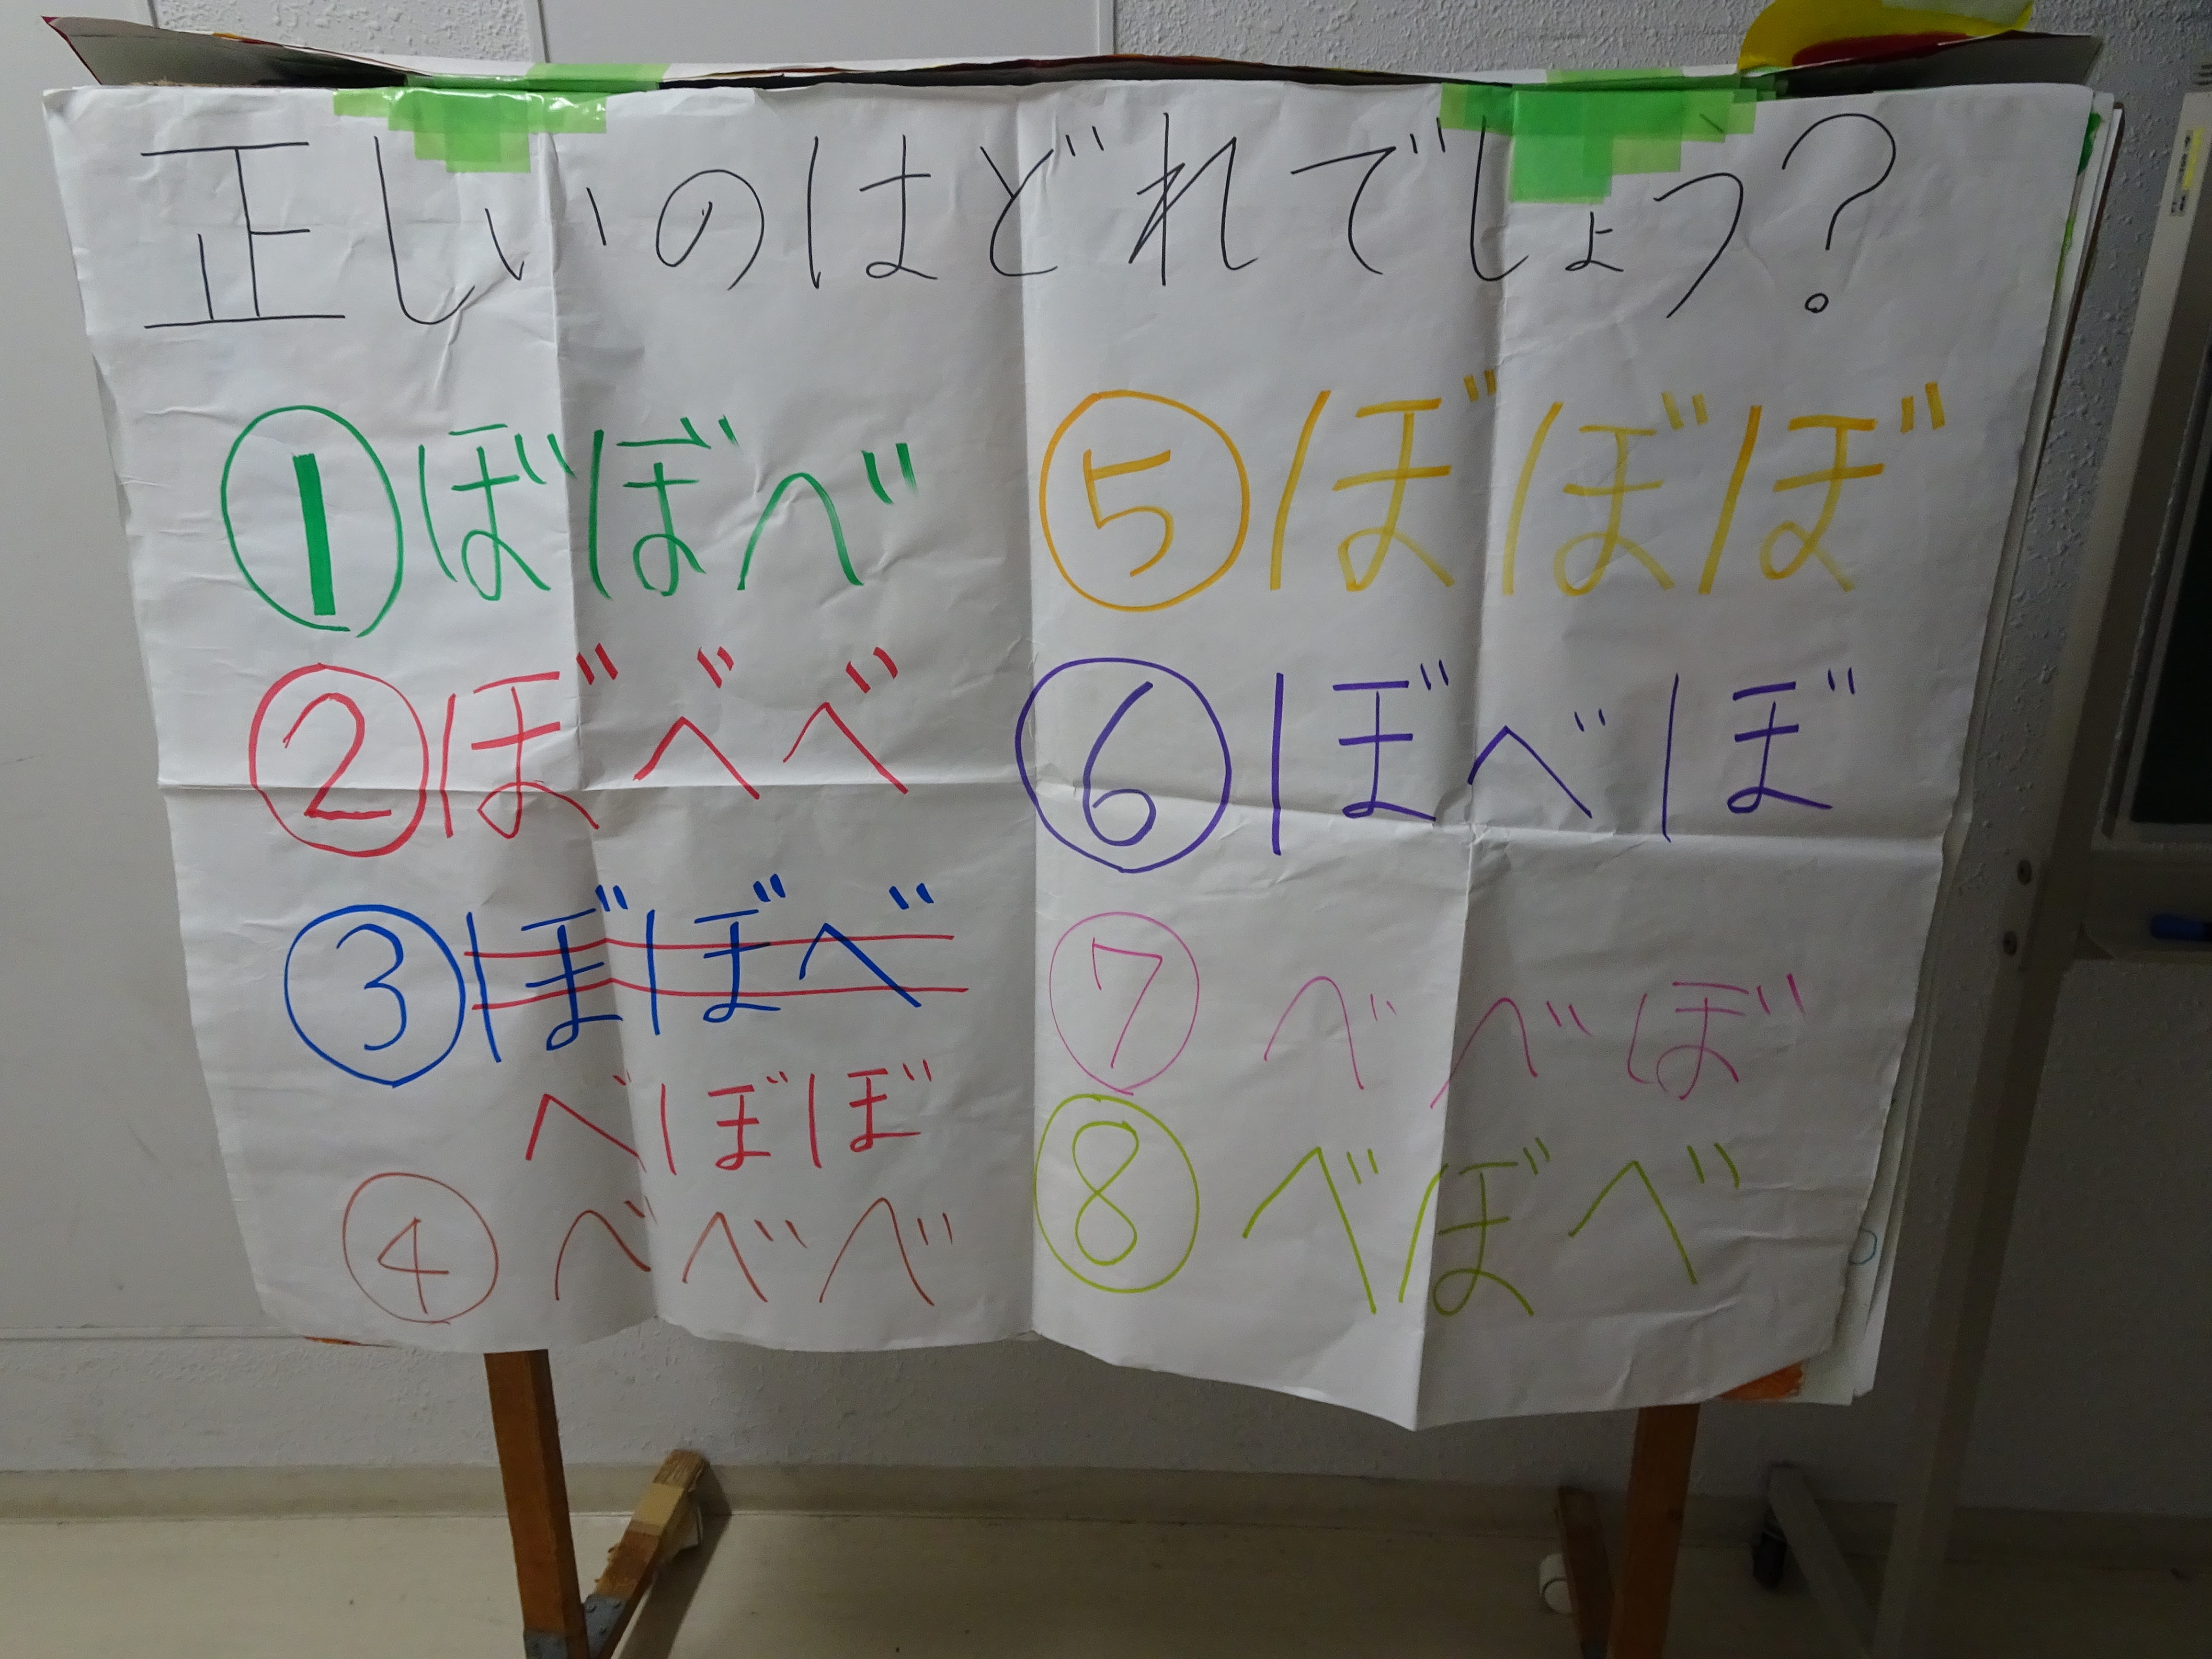 正しいのはどれでしょう?
①ぼぼべ
②ぼべべ
③ぼぼべ
べぼぼ
④べべべ
⑤ぼぼぼ
⑥ぼべぼ
⑦べべぼ
⑧べぼべ